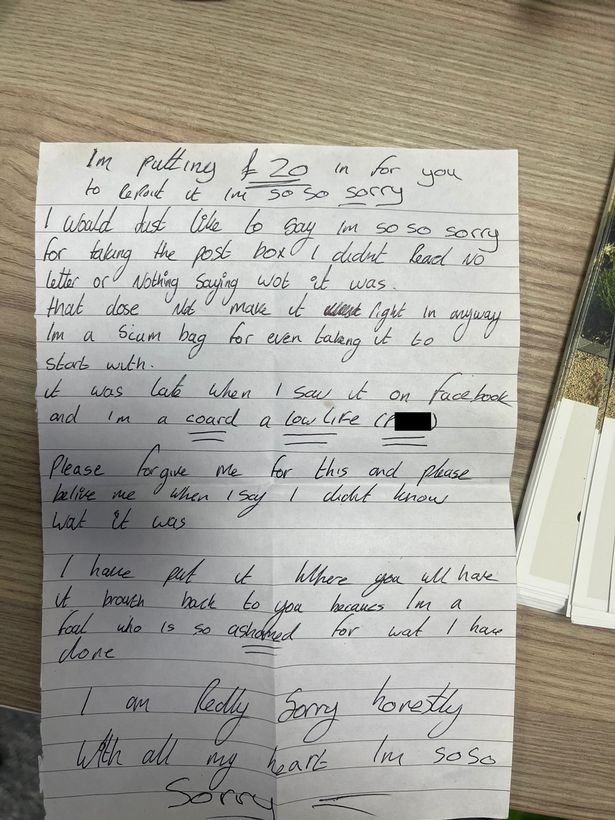 Im putting £20 in for you
to repaut it Im so so sorry
I would dust like to say im so so sorry
for taking the post box I didnt read no
letter or Nothing saying wot it was.
that dose Not make it right in anyway
Im a Scum bag for even taking it to
start with.
it was late when I saw it on facebook
and im a coard a low life (P )
Please forgive me for this and please
belive me when I say I didnt know
wat it was
I have put it where you will have
it brouth back to you becaues Im a
fool who is so ashamed for wat I have
done
I am Really Sorry honestly
With all my heart Im so so
Sorry